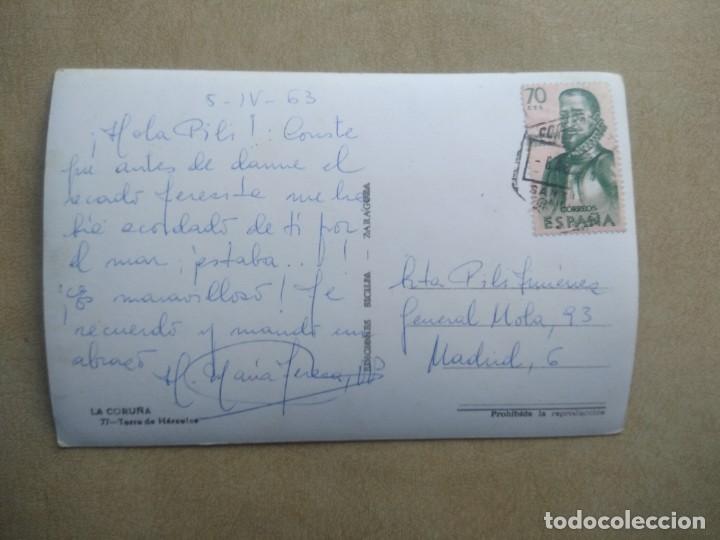 5-IV-63
¡Hola Pili! Conste
que antes de darme el
recado Teresita me ha
bía acordado de ti por
el mar ¡estaba...!
¡es maravilloso! Te
recuerdo y mando un
abrazo
M. María Teresa
LA CORUÑA
77—Torre de Hércules
EDICIONES SICILIA — ZARAGOZA
70
CTS
CORREOS
ESPAÑA
Srta Pili Jiménez
General Mola, 93
Madrid, 6
Prohibida la reproducción
todocoleccion
todocoleccion.net